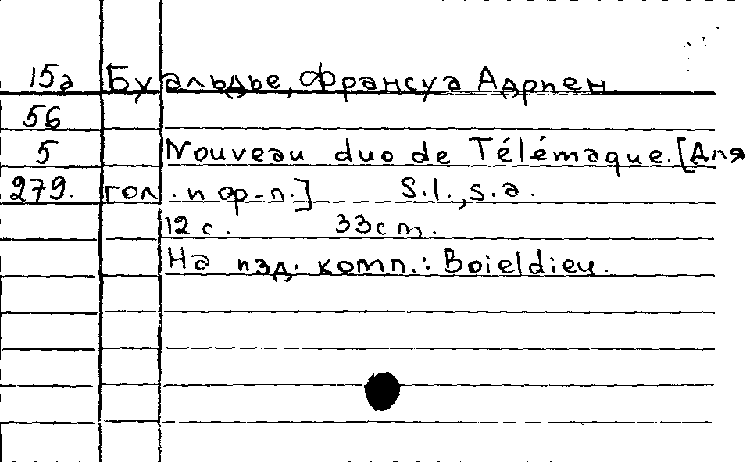 15а Буальдье, Франсуа Адриен
56
5 Nouveau duo de Télémaque. [Для
279. гол. и ф-п.] S.l., s.a.
12 с. 33 cm.
На изд. комп.: Boieldieu.